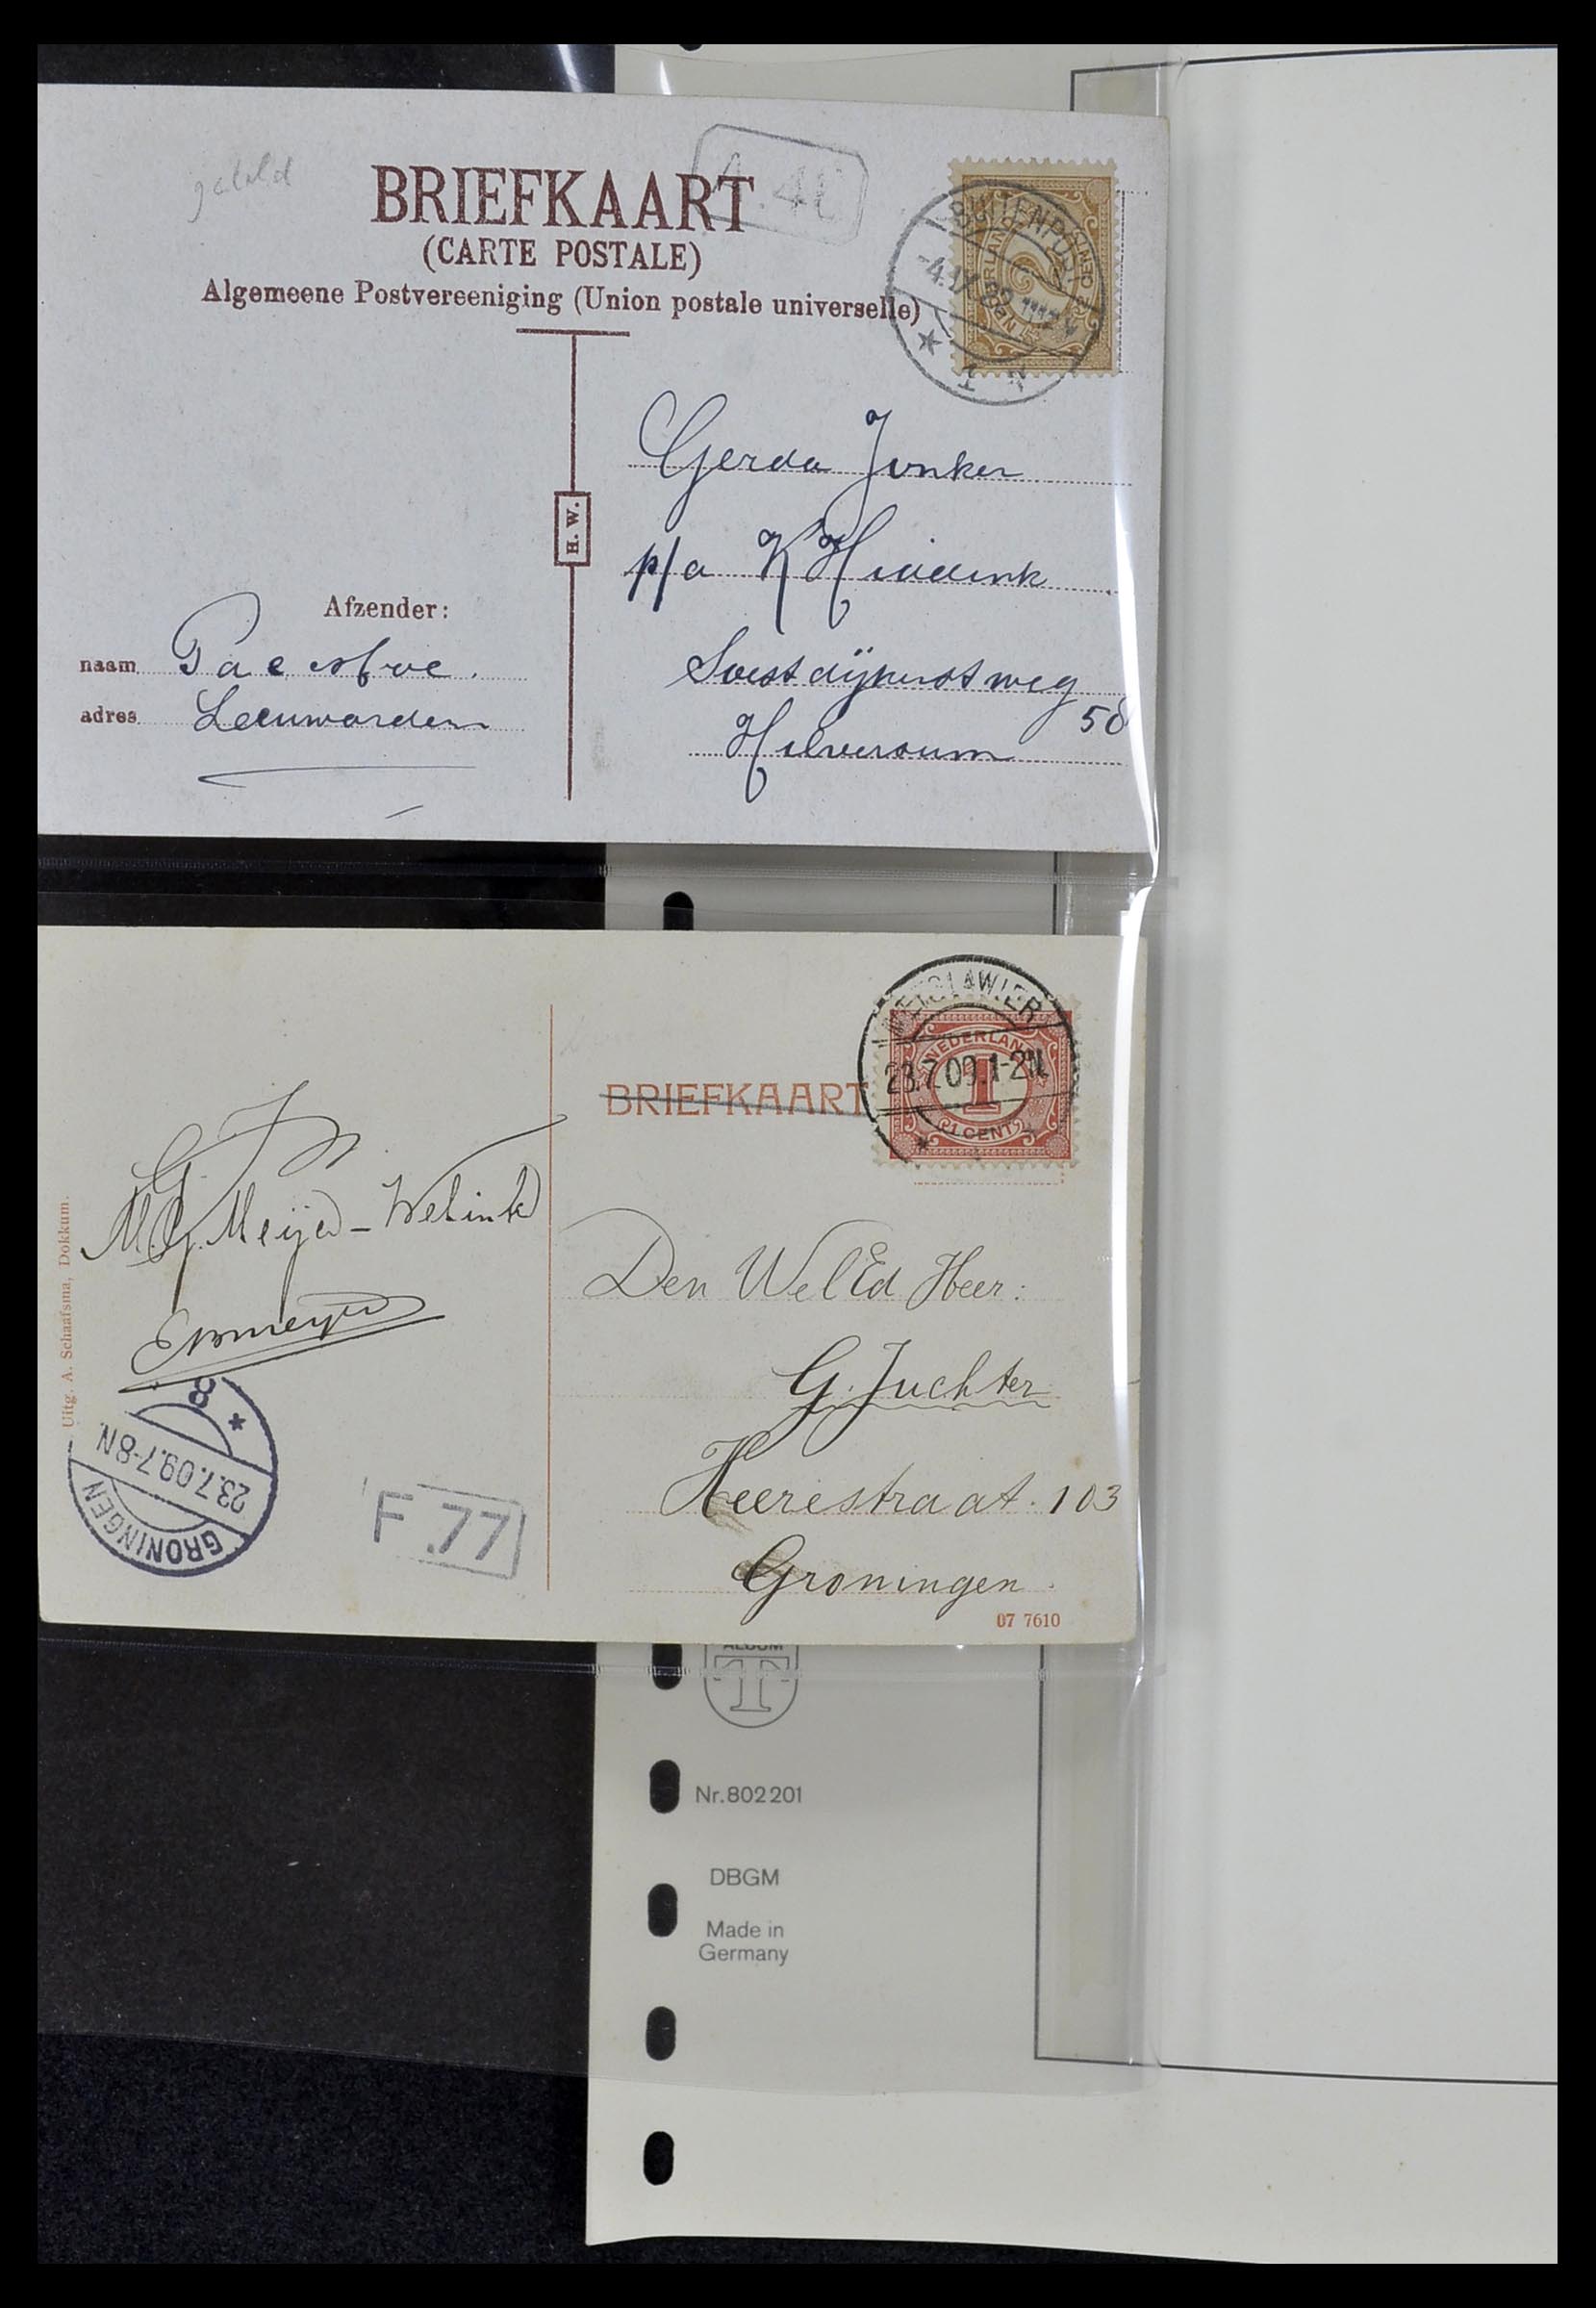 BRIEFKAART
(CARTE POSTALE)
Algemeene Postvereeniging (Union postale universelle)
BUITENPOST
2 CENT
H. W.
Gerda Jonker
p/a K Hiddink
Soestdijkerstraatweg
58
Hilversum
Afzender:
naam
adres Leeuwarden
METSLAWIER
23.7.09.1-2N
NEDERLAND
1
1 CENT
BRIEFKAART
M.G. Meijer-Welink
Uitg. A. Schaafsma, Dokkum.
Den WelEd Heer:
G. Juchter
Heerestraat. 103
Groningen.
8
23.7.09.7-8N
GRONINGEN
F.77
07 7610
ALBUM
T
Nr. 802201
DBGM
Made in
Germany